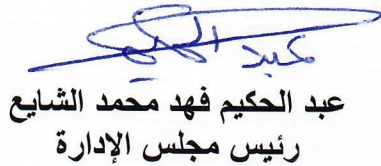 عبد الحكيم فهد محمد الشايع
رئيس مجلس الإدارة